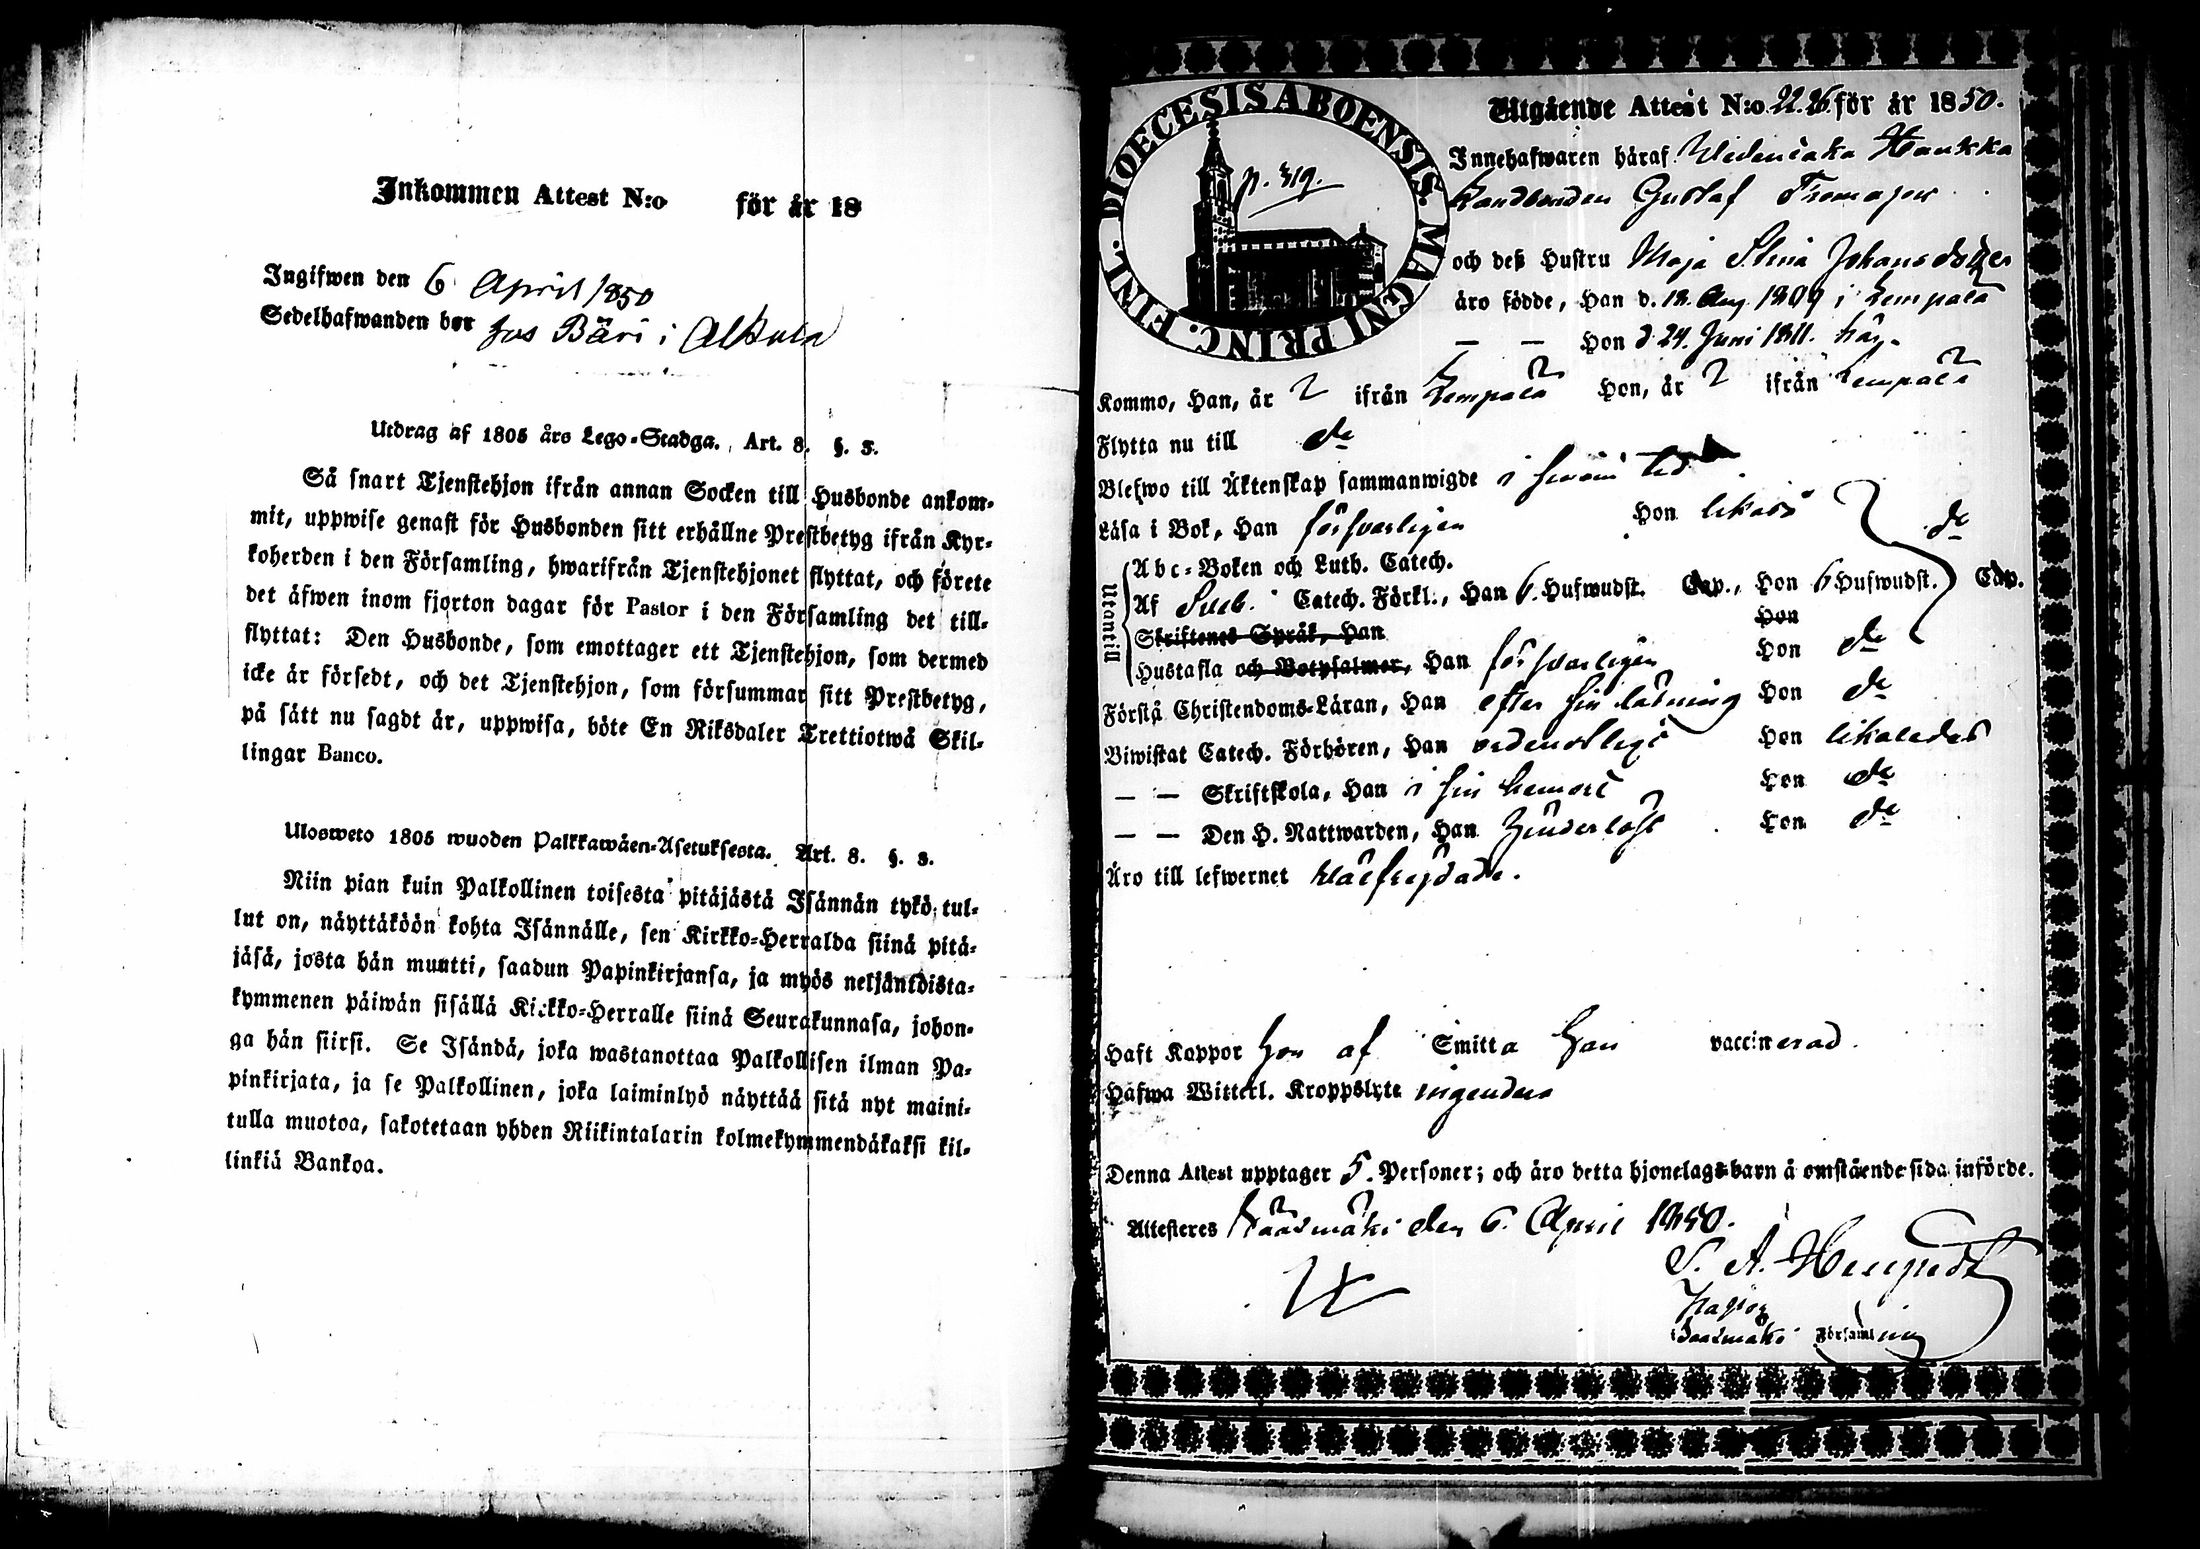 Inkommen Attest N:o för år 18
Ingifwen den 6 April 1850
Sedelhafwanden bor hos Bäri i Alkula
Utdrag af 1805 års Lego-Stadga. Art. 8. §. 3.
Så snart Tjenstehjon ifrån annan Socken till Husbonde ankom-
mit, uppwise genast för Husbonden sitt erhållne Prestbetyg ifrån Kyr-
koherden i den Församling, hwarifrån Tjenstehjonet flyttat, och förete
det äfwen inom fjorton dagar för Pastor i den Församling det till-
flyttat: Den Husbonde, som emottager ett Tjenstehjon, som dermed
icke är försedt, och det Tjenstehjon, som försummar sitt Prestbetyg,
på sätt nu sagdt är, uppwisa, böte En Riksdaler Trettiotwå Skil-
lingar Banco.
Ulosweto 1805 wuoden Palkkawäen-Asetuksesta. Art. 8. §. 3.
Niin pian kuin Palkollinen toisesta pitäjästä Isännän tykö tul-
lut on, näyttäköön kohta Isännälle, sen Kirkko-Herralda siinä pitä-
jäsä, josta hän muutti, saadun Papinkirjansa, ja myös neljäntoista-
kymmenen päiwän sisällä Kirkko-Herralle siinä Seurakunnasa, johon-
ga hän siirsi. Se Isändä, joka wastanottaa Palkollisen ilman Pa-
pinkirjata, ja se Palkollinen, joka laiminlyö näyttää sitä nyt maini-
tulla muotoa, sakotetaan yhden Riikintalarin kolmekymmendäkaksi kil-
linkiä Bankoa.
FINL. DIOECESIS ABOENSIS. MAGNI PRINC.
p. 319.
Utgående Attest N:o 22.26. för år 1850.
Innehafwaren häraf Haukka
Landbonden Gustaf
och deß Hustru Maja Stina Johansdotter
äro födde, Han d. 18. Aug. 1809 i Lempälä
— — Hon d. 24. Juni 1811. här.
Kommo, Han, år ? ifrån Lempälä Hon, år ? ifrån Lempälä
Flytta nu till do
Blefwo till Äktenskap sammanwigde i sinom tid
Läsa i Bok, Han försvarligen Hon likaså
Utantill
Abc-Boken och Luth. Catech. do
Af Sveb. Catech. Förkl., Han 6. Hufwudst. Cap., Hon 6 Hufwudst. Cap.
Skriftenes Språk, Han Hon
Hustafla och Botpsalmer, Han försvarligen Hon do
Förstå Christendoms-Läran, Han efter sin läsning Hon do
Biwistat Catech. Förhören, Han ordentligt Hon likaledes
— — Skriftskola, Han i sin hemort Hon do
— — Den H. Nattwarden, Han hinderlöst Hon do
Äro till lefwernet wälfrejdade.
Haft Koppor Hon af Smitta Han vaccinerad.
Hafwa Witterl. Kroppslyte ingendera
Denna Attest upptager 5. Personer; och äro detta hjonelags barn å omstående sida införde.
Attesteres Sääksmäki den 6. April 1850.
Sääksmäki Församling